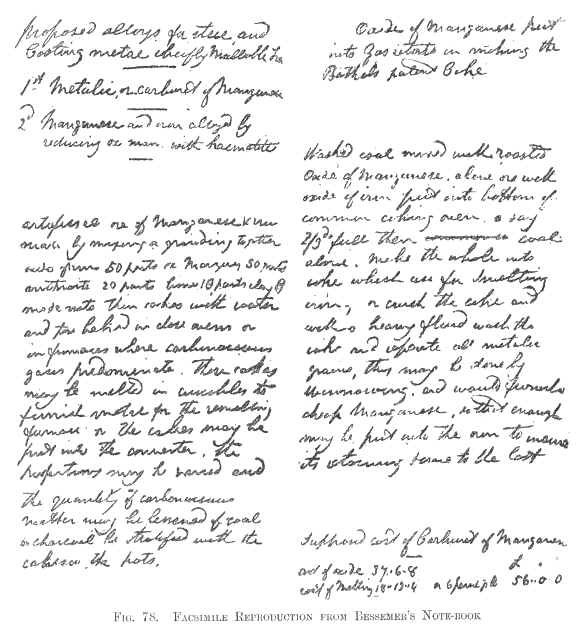 Proposed alloys for steel and
Casting metal chiefly Malleable Iron
1st Metalic, or carburet of Manganese
2d Manganese and iron alloyed by
reducing ox man. with haematite
artificial ore of Manganese & iron
made by mixing & grinding together
oxide of iron 50 parts ox Manganese 50 parts
anthracite 20 parts lime 10 parts clay 8
made into thin cakes with water
and then baked in close ovens or
in furnaces where carbonaceous
gases predominate. These cakes
may be melted in crucibles to
furnish metal for the remelting
furnace or the cakes may be
put into the converter. the
proportions may be varied and
the quantity of carbonaceous
matter may be lessened if coal
or charcoal be stratified with the
cakes in the pots.
Oxide of Manganese put
into Gas retorts in making the
Bethels patent Coke
Washed coal mixed with roasted
Oxide of Manganese. alone or with
oxide of iron put into bottom of
common coking oven. a say
2/3ds full then coal
alone. make the whole into
coke which use for smelting
iron, or crush the coke and
with a heavy fluid wash the
coke and separate all metalic
grains, this may be done by
winnowing, and would furnish
cheap Manganese, so that enough
may be put into the iron to insure
its retaining some to the last
Supposed cost of Carburet of Manganese
cost of oxide 37.6.8 £
cost of Melting 18-13-4 or 6 pence pr lb 56-0-0
FIG. 78. FACSIMILE REPRODUCTION FROM BESSEMER'S NOTE-BOOK